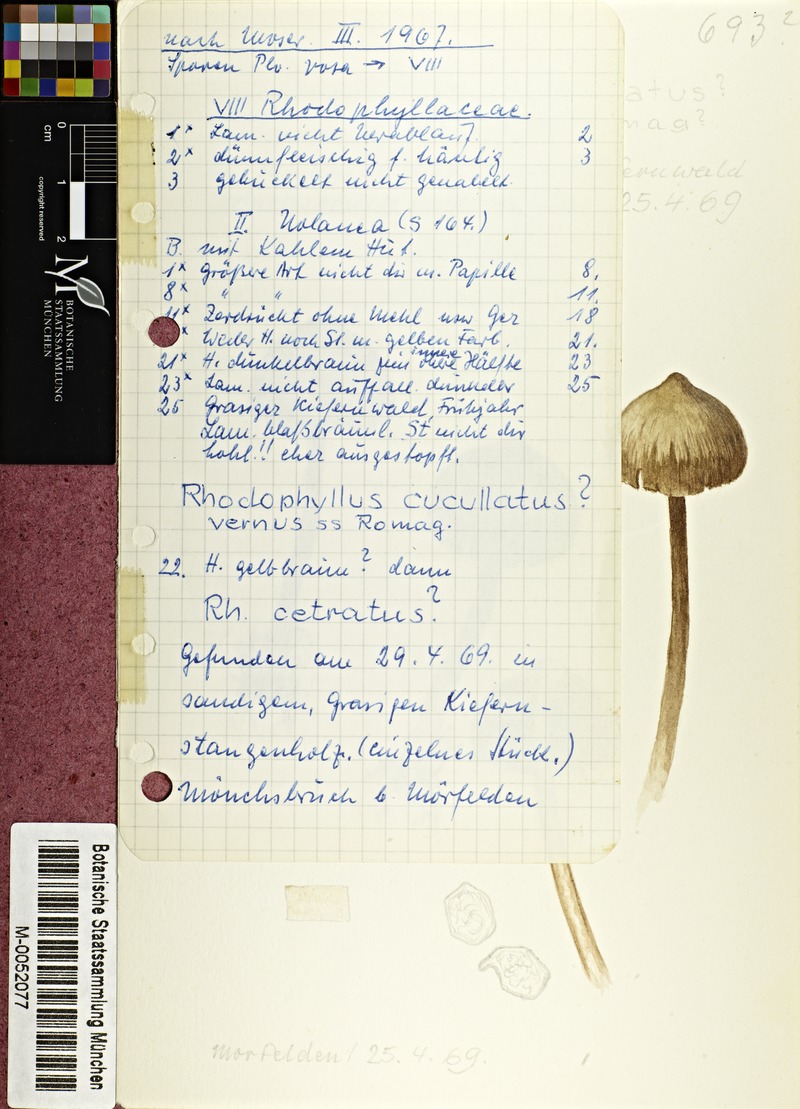 693?
nach Moser. III. 1967.
Sporen Plv. rosa → VIII
VIII Rhodophyllaceae.
1x Lam. nicht herablauf. 2
2x dünnfleischig f. häutig 3
3 gebuckelt nicht genabelt.
II. Nolanea (S 164.)
B. mit Kahlem Hut.
1x größere Art nicht die m. Papille 8.
8x " " 11.
11x Zerdrückt ohne Mehl usw Ger 18
x Weder H. noch St. m. gelben Farb. 21.
21x H. dunkelbraun innere Hälfte 23
23x Lam. nicht auffall. dunkler 25
25 Grasiger Kiefernwald, Frühjahr
Lam. blaßbräunl. St nicht dir
hohl!! eher ausgestopft.
Rhodophyllus cucullatus?
vernus ss Romag.
22. H. gelbbraun? dann
Rh. cetratus?
Gefunden am 29. 4. 69. in
sandigem, grasigen Kiefern-
stangenholz. (einzelnes Stück.)
Mönchsbruch b. Mörfelden
atus?
mag?
ernwald
25.4.69
Mörfelden / 25. 4. 69.
cm
0
1
2
copyright reserved
BOTANISCHE
STAATSSAMMLUNG
MÜNCHEN
Botanische Staatssammlung München
M-0052077